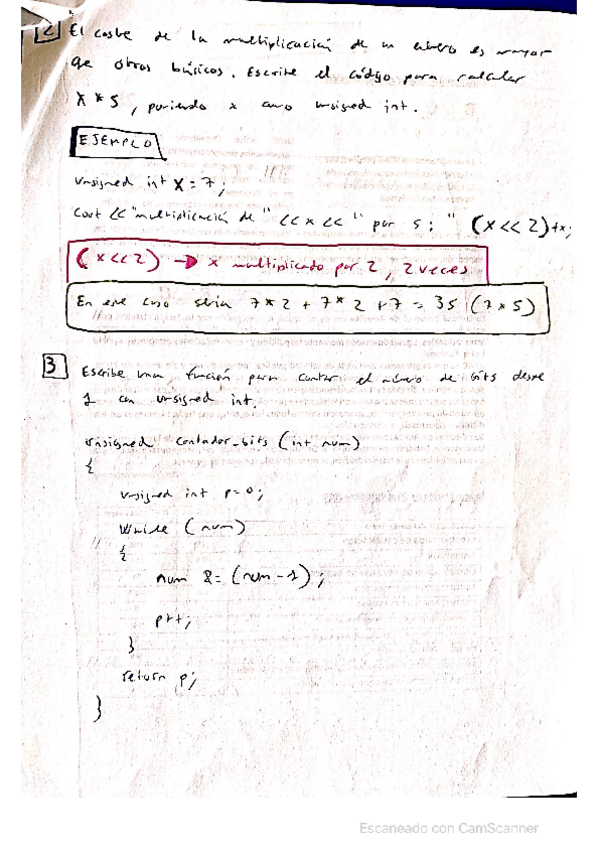 2 El coste de la multiplicación de un número es mayor
que otros básicos. Escribe el código para calcular
x * 5, poniendo x como unsigned int.
EJEMPLO
unsigned int x = 7;
cout << "multiplicación de " << x << " por 5: " (x << 2)+x;
(x << 2) → x multiplicado por 2, 2 veces
En ese caso sería 7*2 + 7*2 + 7 = 35 (7*5)
3 Escribe una función para contar el número de bits desde
1 con unsigned int.
unsigned contador_bits (int num)
{
unsigned int p=0;
While (num)
{
num &= (num-1);
p++;
}
return p;
}
Escaneado con CamScanner